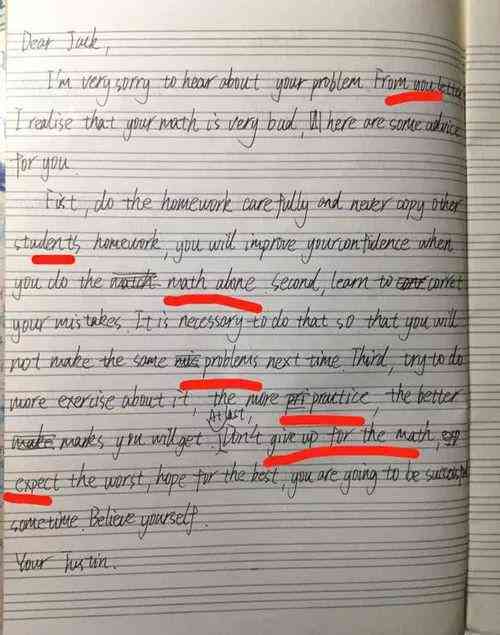 Dear Jack,
I'm very sorry to hear about your problem. From you letter
I realise that your math is very bad, here are some advice
for you.
First, do the homework carefully and never copy other
student's homework, you will improve your confidence when
you do the math alone. Second, learn to corret
your mistakes. It is necessary to do that so that you will
not make the same problems next time. Third, try to do
more exercise about it, the more practice, the better
At last,
marks you will get. Don't give up for the math,
expect the worst, hope for the best, you are going to be
sometime. Believe yourself.
Your Justin.